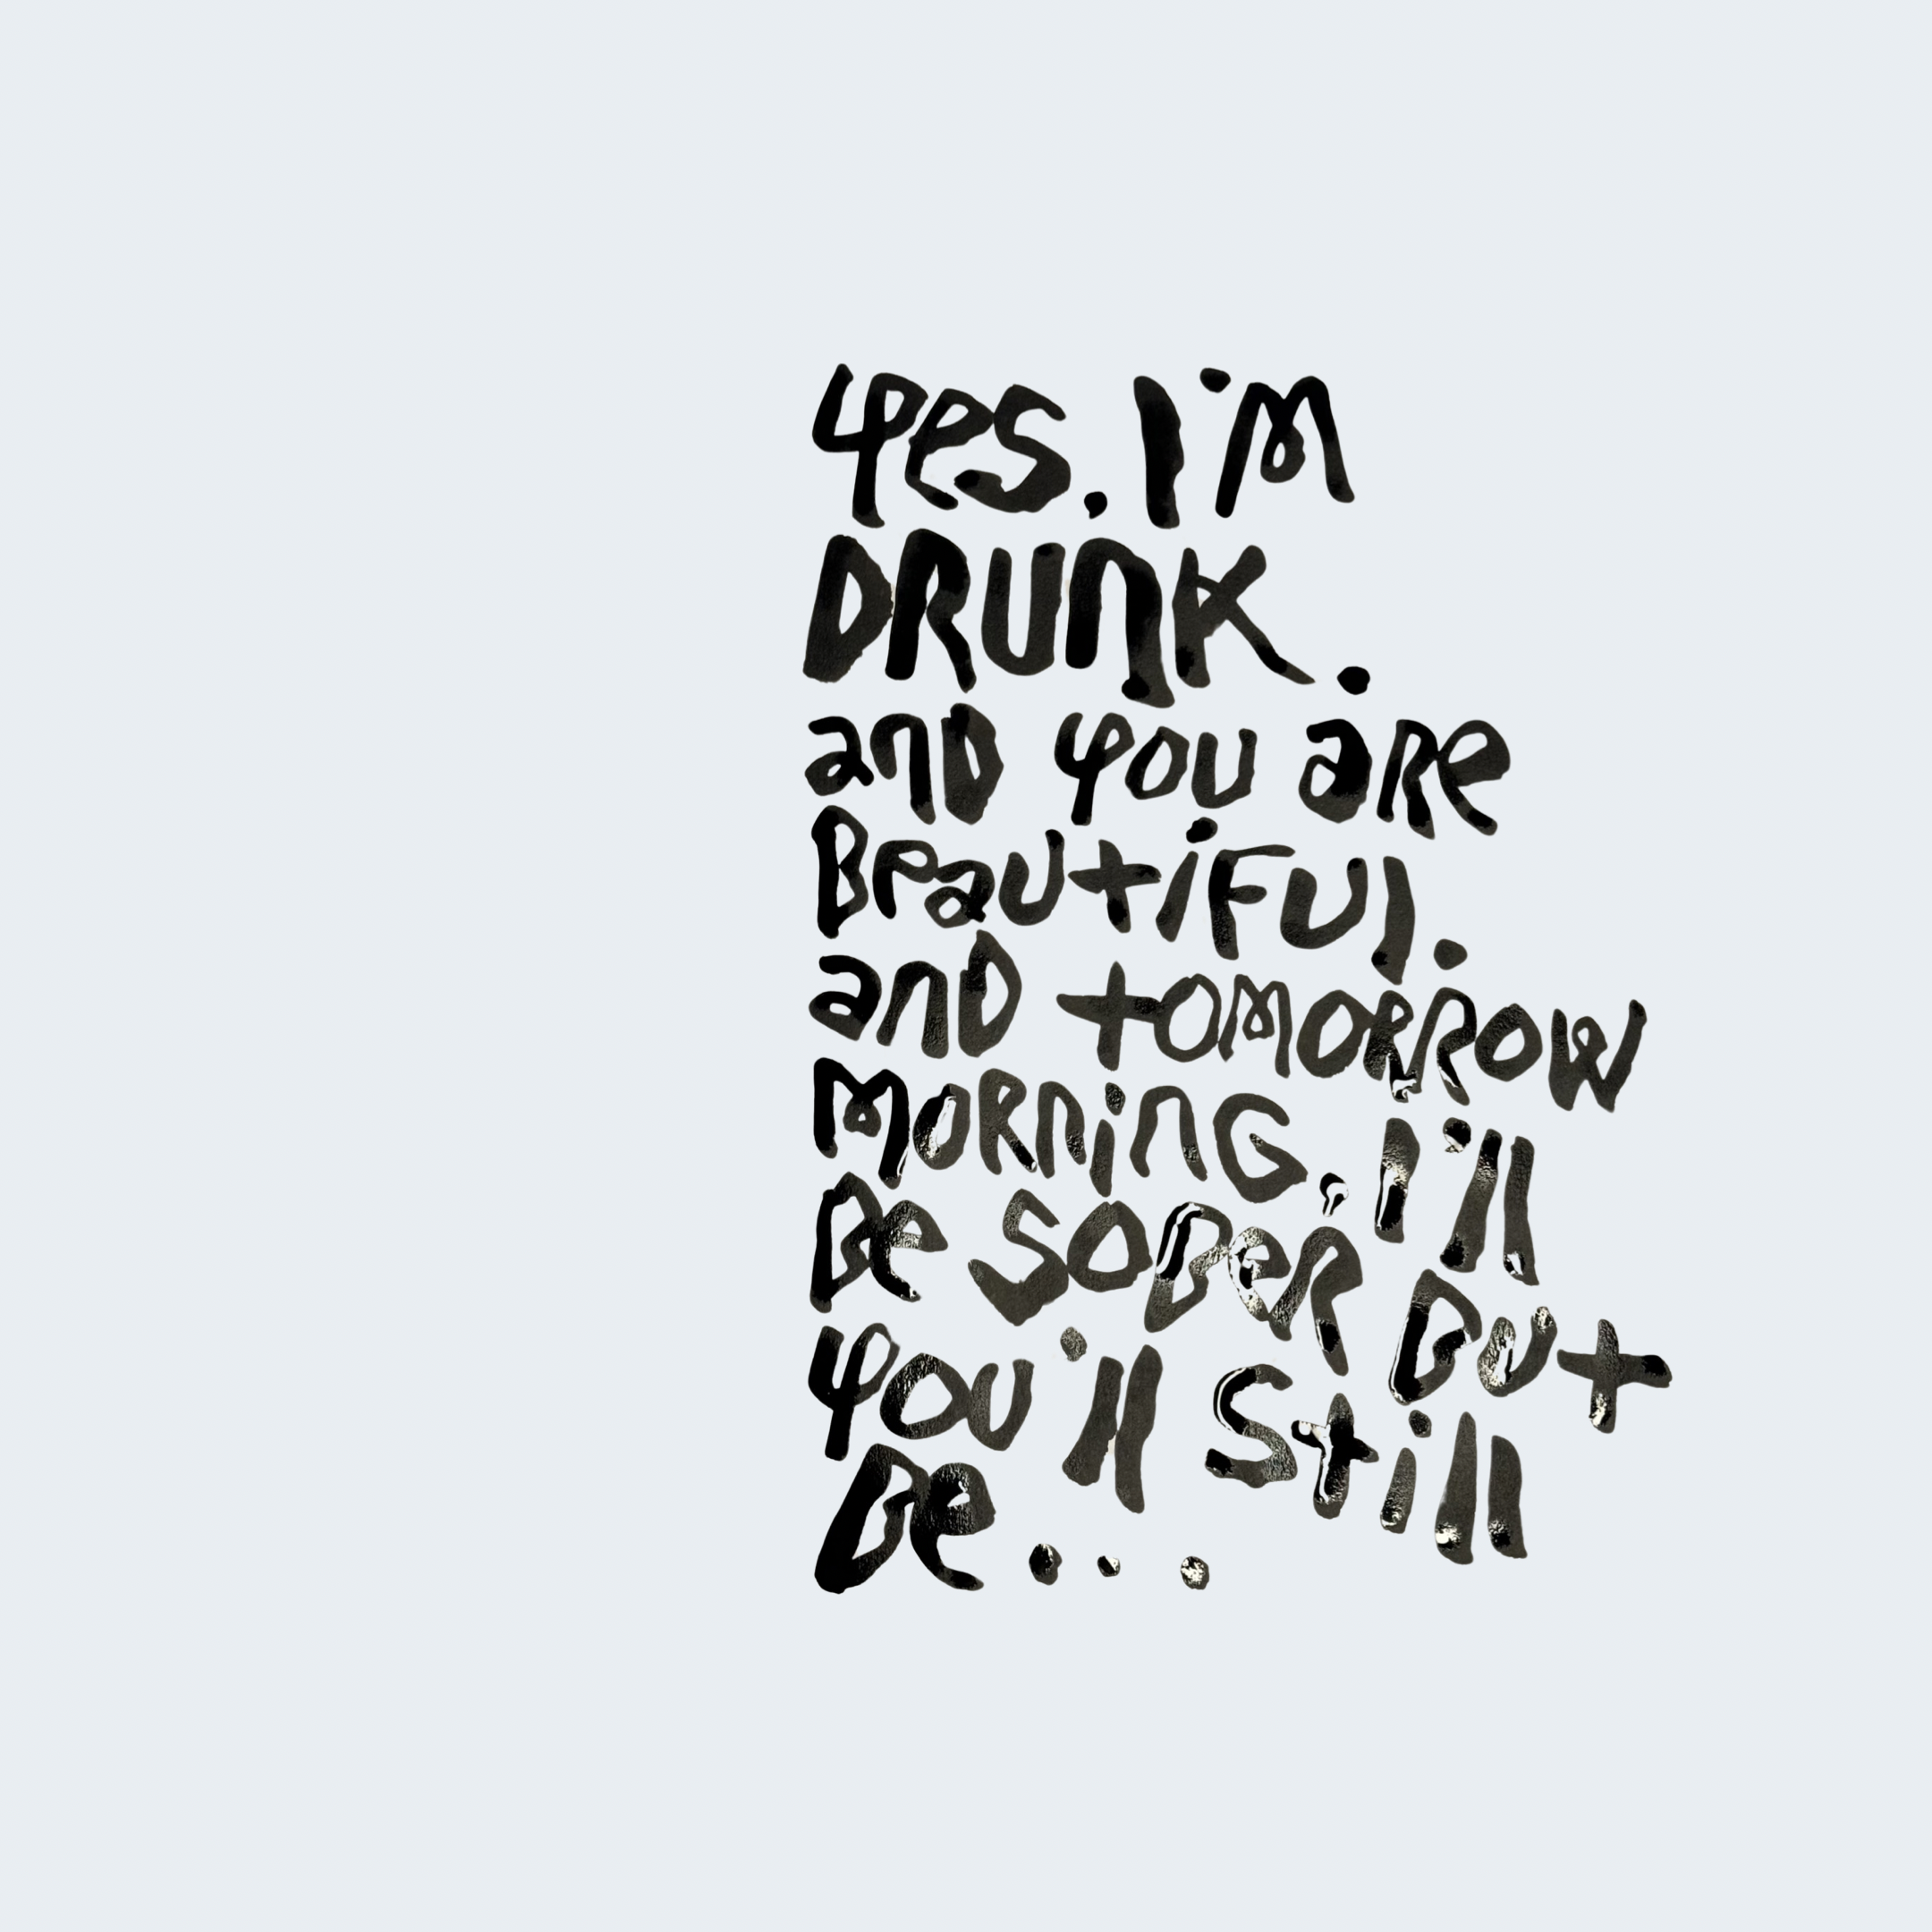 Yes, I'm
DRUNK.
and you are
Beautiful.
and tomorrow
Morning, I'll
Be SOBER But
you'll Still
Be...